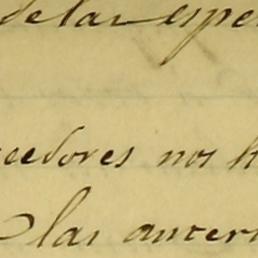 de las espe
cedores nos h
las anter